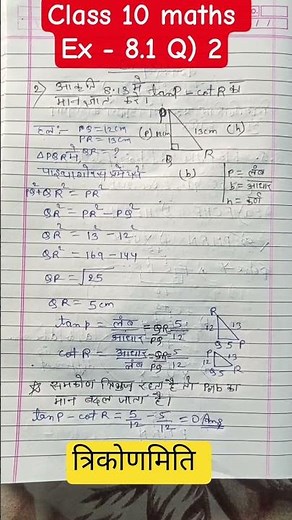 Class 10 maths
Ex - 8.1 Q) 2
2) आकृति 8.13 में tanP - cot R का
मान ज्ञात करें।
हल:- PQ = 12cm
PR = 13cm
QR = ?
ΔPQR में,
(p) 13cm (h)
R
(b)
P = लंब
b = आधार
h = कर्ण
PQ² + QR² = PR²
QR² = PR² - PQ²
QR² = 13² - 12²
QR² = 169 - 144
QR = √25
QR = 5cm
tan P = लंब/आधार = QR/PQ = 5/12
cot R = आधार/लंब = QR/PQ = 5/12
R
12 13
Q 5 P
P
12 13
Q 5 R
समकोण त्रिभुज रहता है तो P,b का
मान बदल जाता है।
tan P - cot R = 5/12 - 5/12 = 0 Ans
त्रिकोणमिति